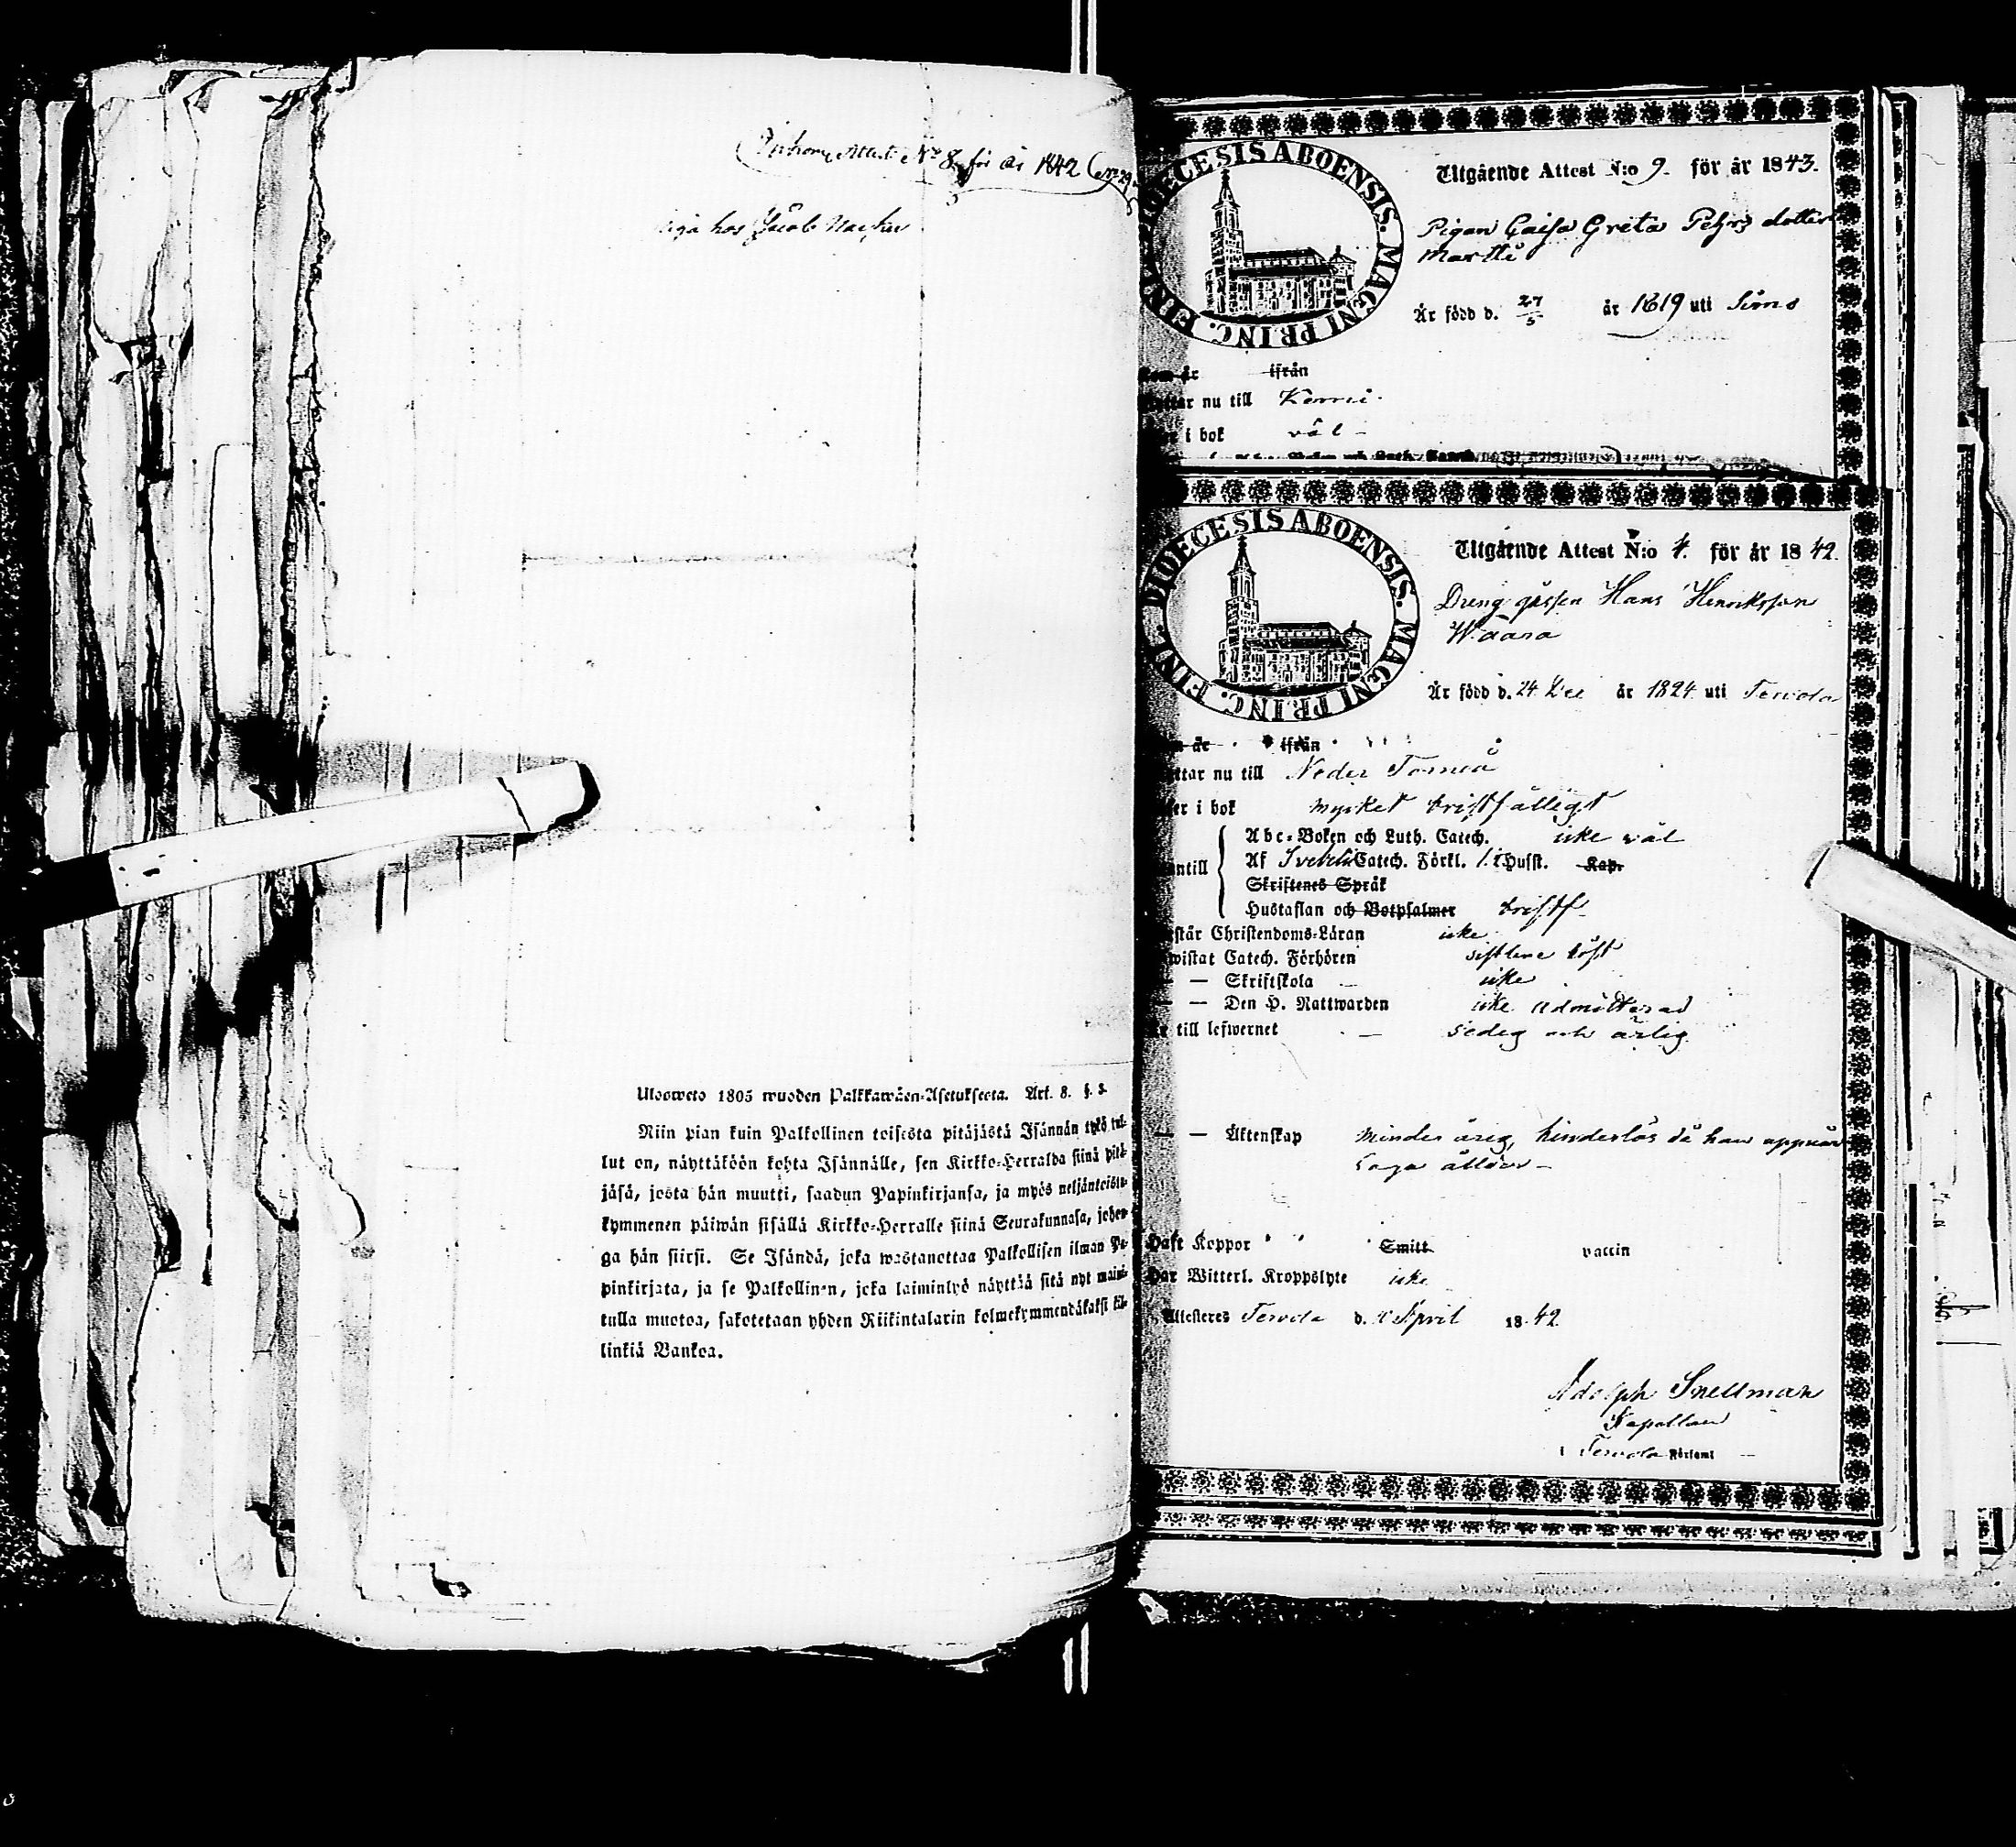 Attest N:o 8 för år 1842
hos Jacob
Ulosweto 1805 wuoden Palkkawäen-Asetuksesta. Art. 8. §. 3.
Niin pian kuin Palkollinen toisesta pitäjästä Isännän tykö tul-
lut on, näyttäköön kohta Isännälle, sen Kirkko-Herralda siinä pitä-
jäsä, josta hän muutti, saadun Papinkirjansa, ja myös neljäntoista-
kymmenen päiwän sisällä Kirkko-Herralle siinä Seurakunnasa, johon-
ga hän siirsi. Se Isändä, joka wastanottaa Palkollisen ilman Pa-
pinkirjata, ja se Palkollinen, joka laiminlyö näyttää sitä nyt maini-
tulla muotoa, sakotetaan yhden Riikintalarin kolmekymmendäkaksi kil-
linkiä Bankoa.
DIOECESIS ABOENSIS. MAGNI PRINC. FINL.
Utgående Attest N:o 9. för år 1843.
Pigan Caisa Greta Pehrs dotter
Martti
Är född d. 27/5 år 1819 uti Simo
är ifrån
nu till Kemi
i bok väl
DIOECESIS ABOENSIS. MAGNI PRINC. FINL.
Utgående Attest N:o 4. för år 1842.
Dreng gåssen Hans Henriksson
Waara
Är född d. 24 Dec år 1824 uti Terwola
är ifrån
nu till Neder Torneå
i bok mycket bristfälligt
Abc-Boken och Luth. Catech. icke väl
Af Svebeli Catech. Förkl. 1. Hufst. Kap.
Skriftenes Språk
Hustaflan och Botpsalmer bristf.
Christendoms-Läran icke
Catech. Förhören sistlene höst
— Skriftskola icke
— Den H. Nattwarden icke admitterad
till lefwernet — sedig och ärlig
— — Äktenskap Minder årig, hinderlös då han uppnår
laga ålder —
Haft Koppor Smitt vaccin
Har Witterl. Kroppslyte icke
Attesteres Terwola d. April 1842
Adolph Snellman
Kapellan
i Terwola Församl